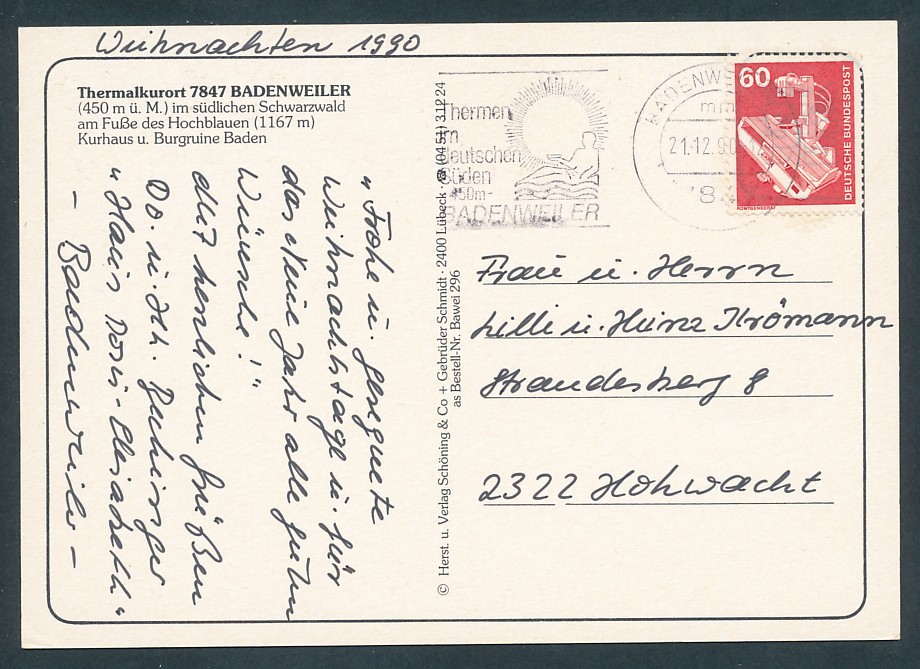 Weihnachten 1990
Thermalkurort 7847 BADENWEILER
(450 m ü. M.) im südlichen Schwarzwald
am Fuße des Hochblauen (1167 m)
Kurhaus u. Burgruine Baden
"Frohe u. gesegnete
Weihnachtstage u. für
das Neue Jahr alle guten
Wünsche!"
Mit herzlichen Grüßen
"Haus Doris-Elisabeth"
- Badenweiler -
© Herst. u. Verlag Schöning & Co + Gebrüder Schmidt · 2400 Lübeck · ☎ (04 51) 3 12 24
as Bestell-Nr. Bawei 296
Thermen
im
deutschen
Süden
450m-
BADENWEILER
BADENWE
21.12.90
784
60
DEUTSCHE BUNDESPOST
RÖNTGENGERÄT
Frau u. Herrn
Lilli u. Heinz Krömann
Strandesberg 8
2322 Hohwacht